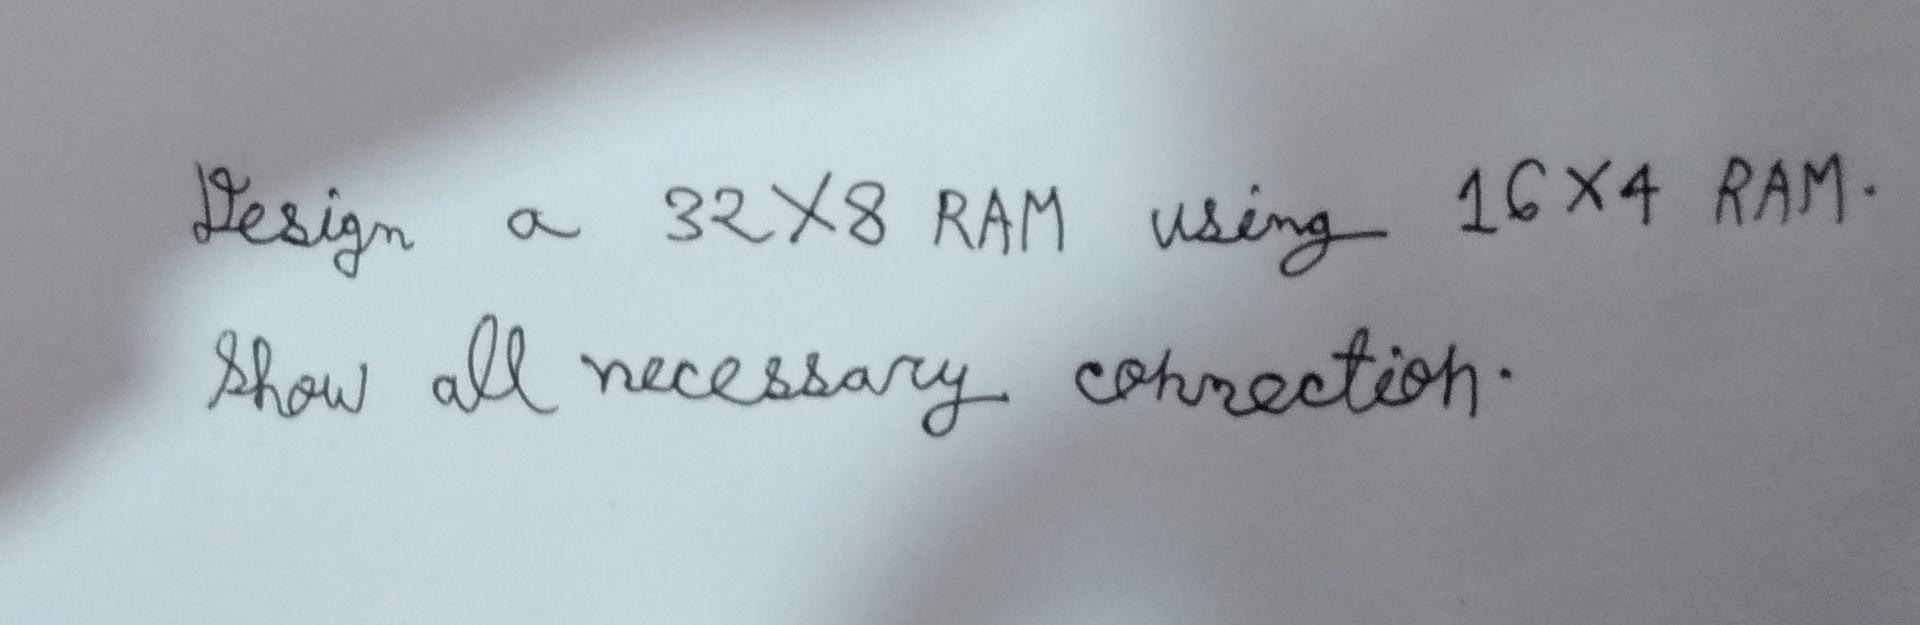 Design a 32X8 RAM using 16X4 RAM.
Show all necessary connection.